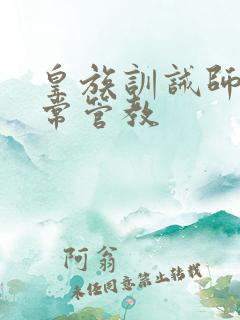 皇族訓誡師
常管教
阿翁
未经同意禁止转载